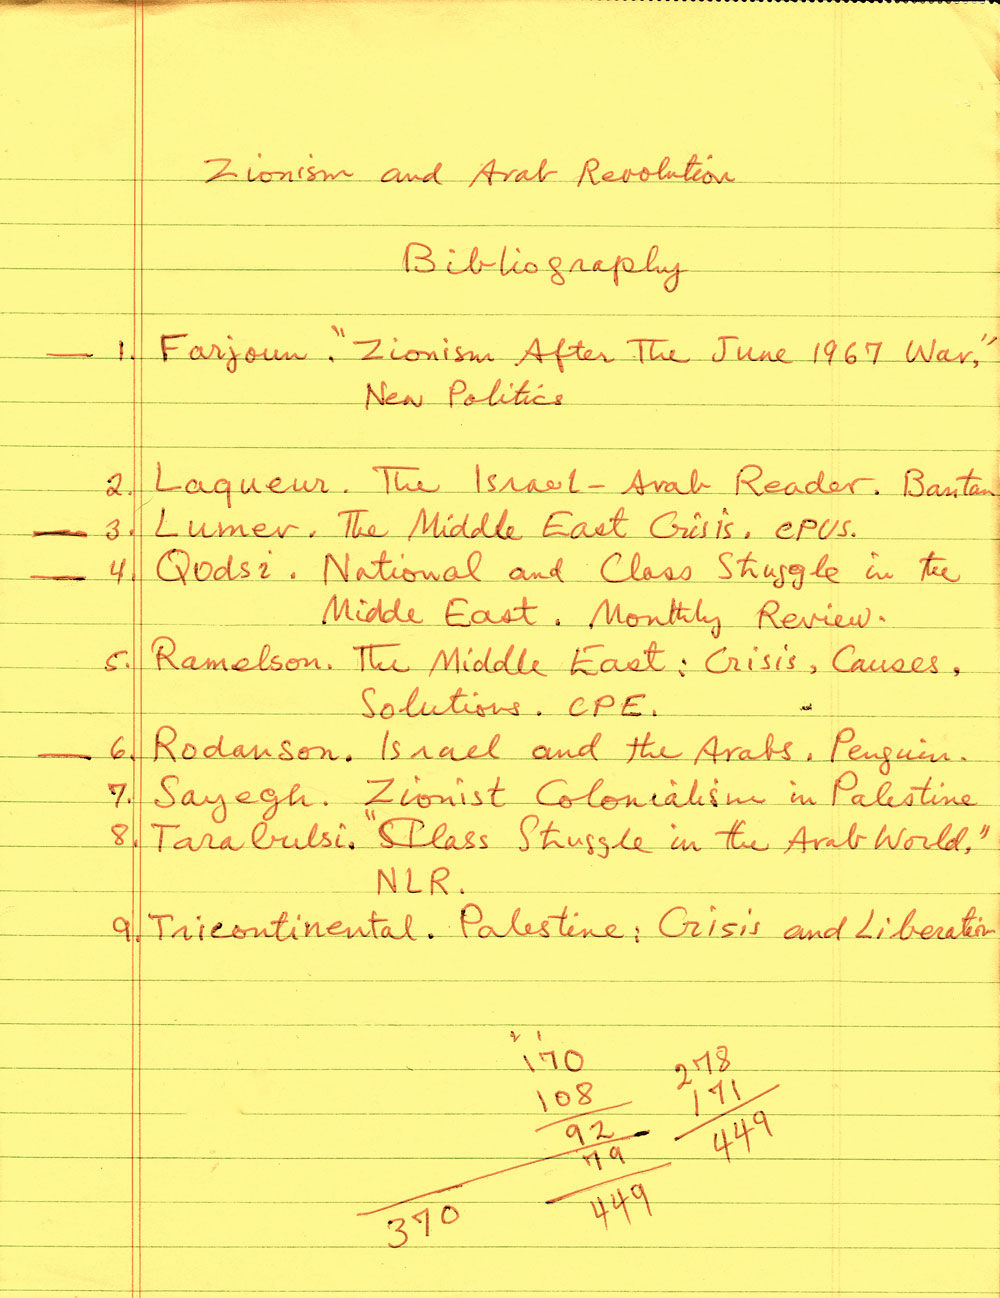 Zionism and Arab Revolution
Bibliography
— 1. Farjoun. "Zionism After The June 1967 War,"
New Politics
2. Laqueur. The Israel-Arab Reader. Bantam
— 3. Lumer. The Middle East Crisis. CPUS.
— 4. Qodsi. National and Class Struggle in the
Midde East. Monthly Review.
5. Ramelson. The Middle East: Crisis, Causes,
Solutions. CPE.
— 6. Rodanson. Israel and the Arabs. Penguin.
7. Sayegh. Zionist Colonialism in Palestine
8. Tarabulsi. "Class Struggle in the Arab World,"
NLR.
9. Tricontinental. Palestine: Crisis and Liberation
2 1
170 278
108 171
92 449
79
370 449